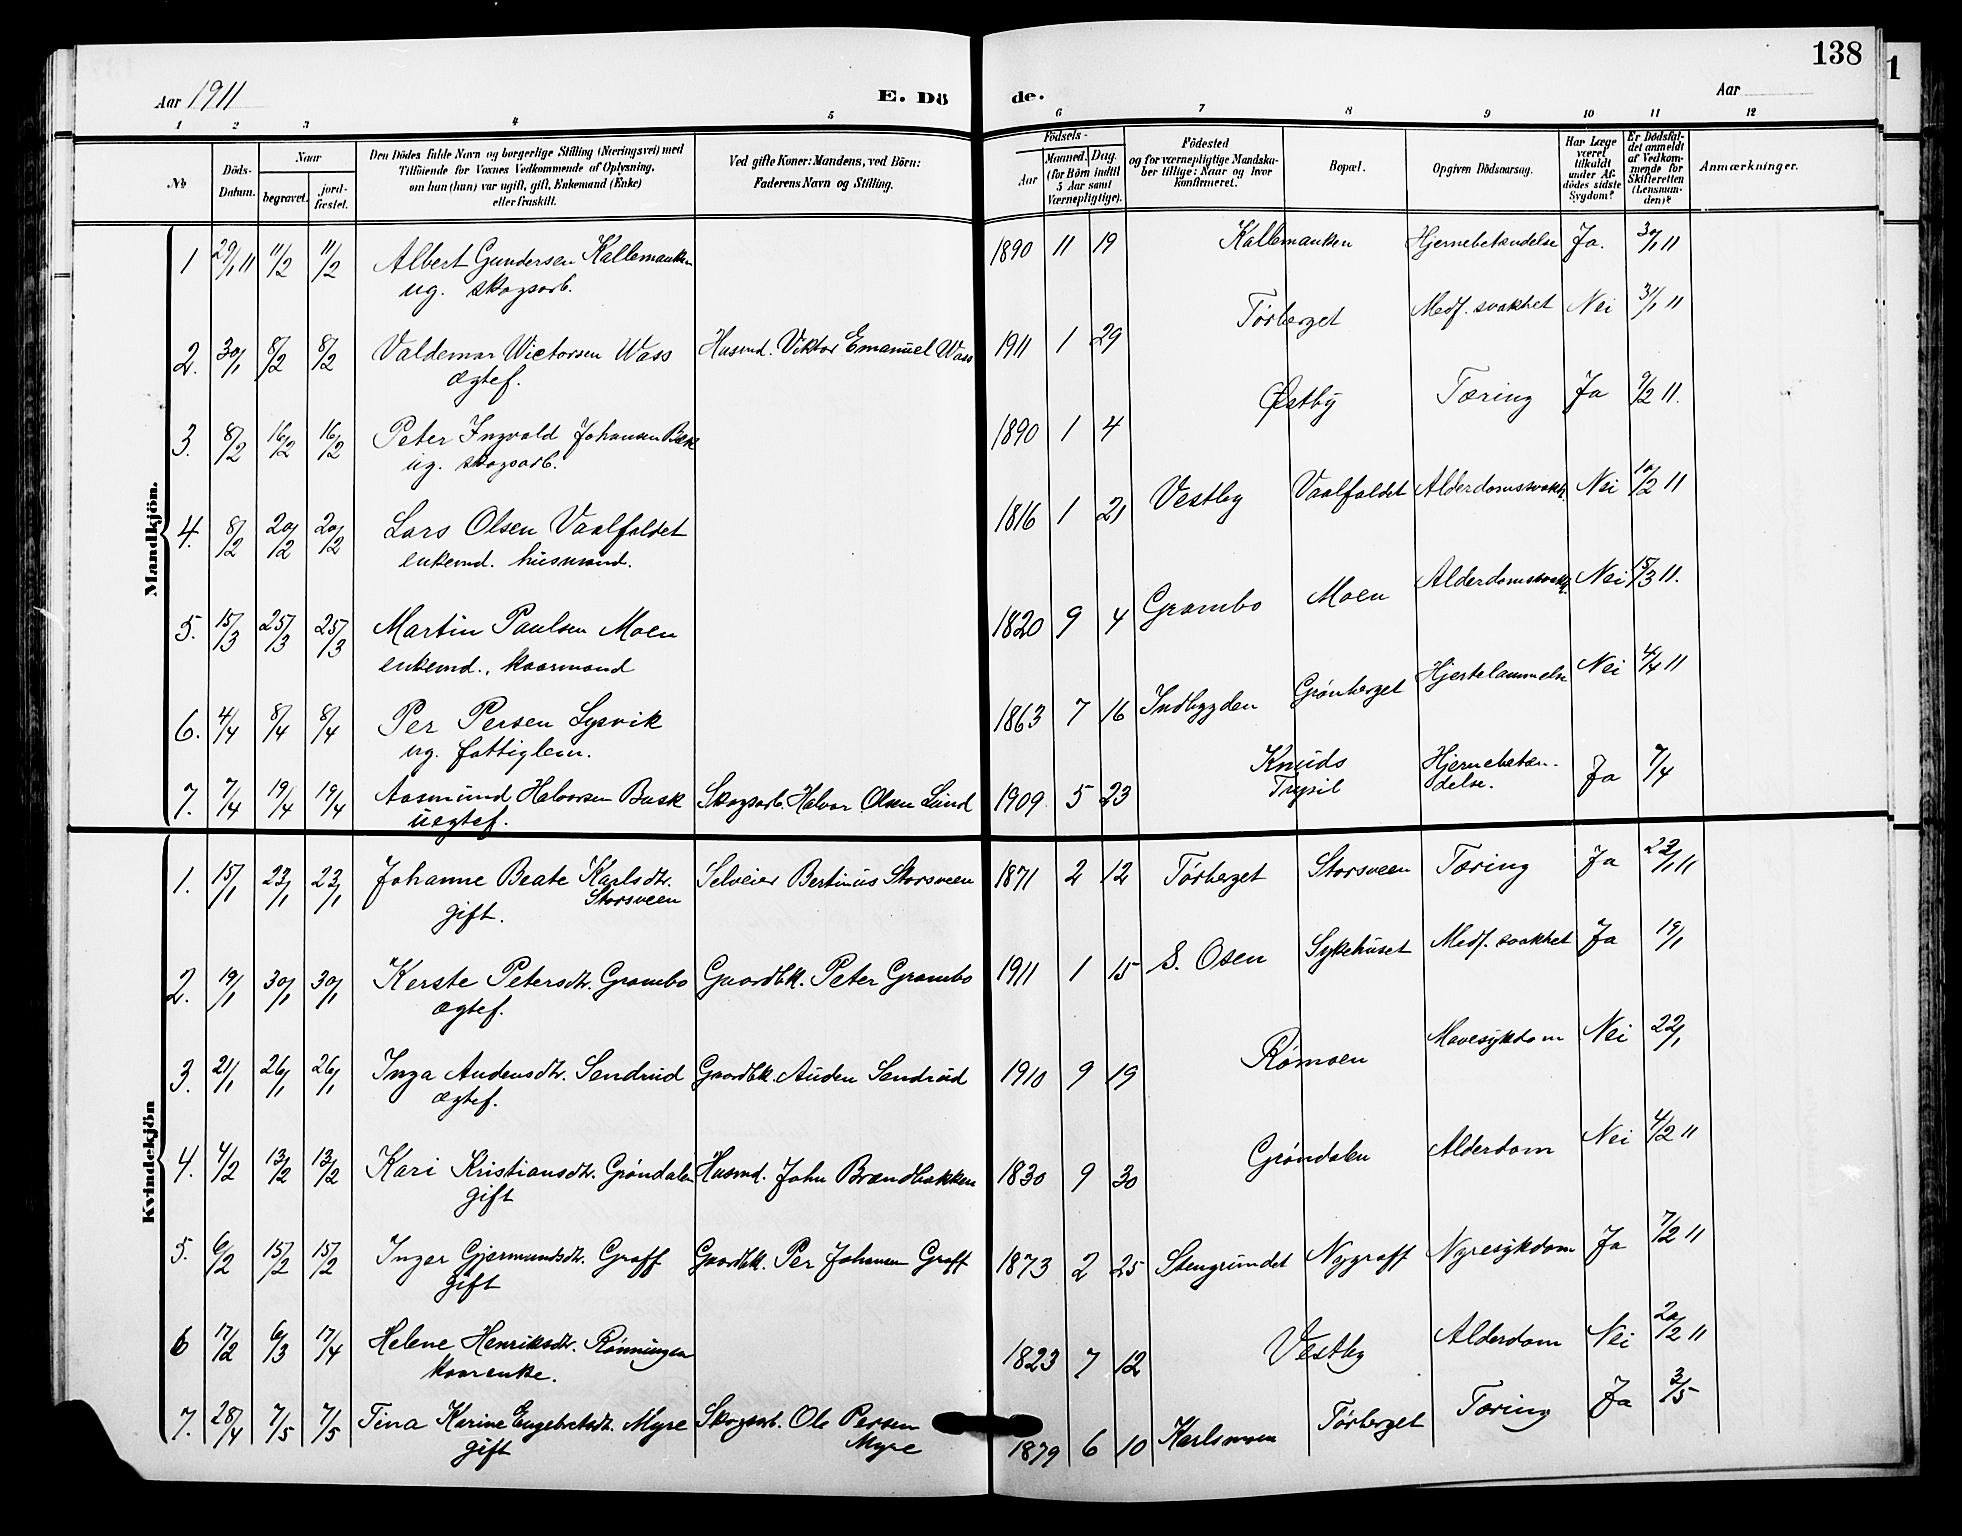 138
1
Aar 1911
E. Dö
de.
Aar
1 2 3 4 5 6 7 8 9 10 11 12
No
Döds-Datum.
Naar
begravet.
jord-fæstet.
Den Dödes fulde Navn og borgerlige Stilling (Næringsvei) med
Tilföiende for Voxnes Vedkommende af Oplysning,
om han (hun) var ugift, gift, Enkemand (Enke)
eller fraskilt.
Ved gifte Koner: Mandens, ved Börn:
Faderens Navn og Stilling.
Födsels-
Aar
Maaned. Dag.
(for Börn indtil
5 Aar samt
Værnepligtige).
Födested
og for værnepligtige Mandska-
ber tillige: Naar og hvor
konfirmeret.
Bopæl.
Opgiven Dödsaarsag.
Har Læge
været
tilkaldt
under Af-
dödes sidste
Sygdom?
Er Dödsfal-
det anmeldt
af Vedkom-
mende for
Skifteretten
(Lensman-
den)?
Anmærkninger.
Mandkjön.
1 29/1 11 11/2 11/2 Albert Gundersen Kallemanken 1890 11 19 Kallemanken Hjernebetændelse Ja. 30/1 11
ug. skogsarb.
2. 30/1 8/2 8/2 Valdemar Wictorsen Wass Husmd. Viktor Emanuel Wass 1911 1 29 Törberget Medf. svakhet Nei 31/1 11
ægtef.
3. 8/2 16/2 16/2 Peter Ingvald Johansen Bæk 1890 1 4 Østby Tæring Ja 9/2 11.
ug. skogsarb.
4. 8/2 20/2 20/2 Lars Olsen Vaalfaldet 1816 1 21 Vestby Vaalfaldet Alderdomssvakh. Nei 10/2 11
enkemd. husmand.
5. 15/3 25/3 25/3 Martin Paulsen Moen 1820 9 4 Grambo Moen Alderdomssvakh. Nei 15/3 11.
enkemd., kaarmand
6. 4/4 8/4 8/4 Per Persen Lysvik 1863 7 16 Indbygden Grönberget Hjertelammelse Nei 4/4 11
ug. fattiglem.
7. 7/4 19/4 19/4 Aasmund Halvorsen Bæk Skogsarb. Halvor Olsen Lund 1909 5 23 Knuds Trysil Hjernebetæn-delse. Ja 7/4
uægtef.
Kvindekjön
1. 15/1 23/1 23/1 Johanne Beate Karlsdtr. Storsveen Selveier Bertinus Storsveen 1871 2 12 Törberget Storsveen Tæring Ja 22/1 11
gift.
2. 19/1 30/1 30/1 Kerste Petersdtr. Grambo Gaardbk. Peter Grambo 1911 1 15 S. Osen Sykehuset Medf. svakhet Ja 19/1
ægtef.
3. 21/1 26/1 26/1 Inga Audensdtr. Sendrud Gaardbk. Auden Sendrud 1910 9 19 Römoen Mavesykdom Nei 22/1
ægtef.
4. 4/2 13/2 13/2 Kari Kristiansdtr. Gröndalen Husmd. John Brændbakken 1830 9 30 Gröndalen Alderdom Nei 4/2 11
gift
5. 6/2 15/2 15/2 Inger Gjermundsdtr. Graff Gaardbk. Per Johansen Graff 1873 2 25 Stengrundet Nygraff Nyresykdom Ja 7/2 11
gift
6 17/2 6/3 17/4 Helene Henriksdtr. Rönningen 1823 7 12 Vestby Alderdom Nei 20/2 11
kaarenke.
7. 28/4 7/5 7/5 Tina Karine Engebretsdtr. Myre Skogsarb. Ole Persen Myre 1879 6 10 Karlsmoen Törberget Tæring Ja 3/5
gift